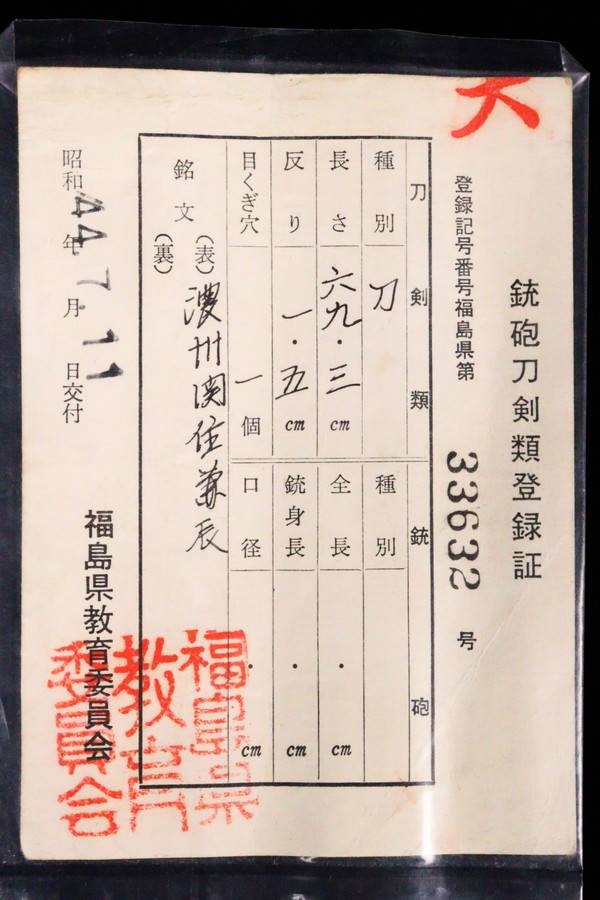 大
銃砲刀剣類登録証
登録記号番号福島県第 33632 号
刀剣類
銃砲
種別 刀
長さ 六九・三 cm
反り 一・五 cm
目くぎ穴 一 個
種別
全長 ・ cm
銃身長 ・ cm
口径 ・ cm
銘文
(表) 濃州関住兼辰
(裏)
昭和 44 年 7. 月 11 日交付
福島県教育委員会
福島県
教育
委員会